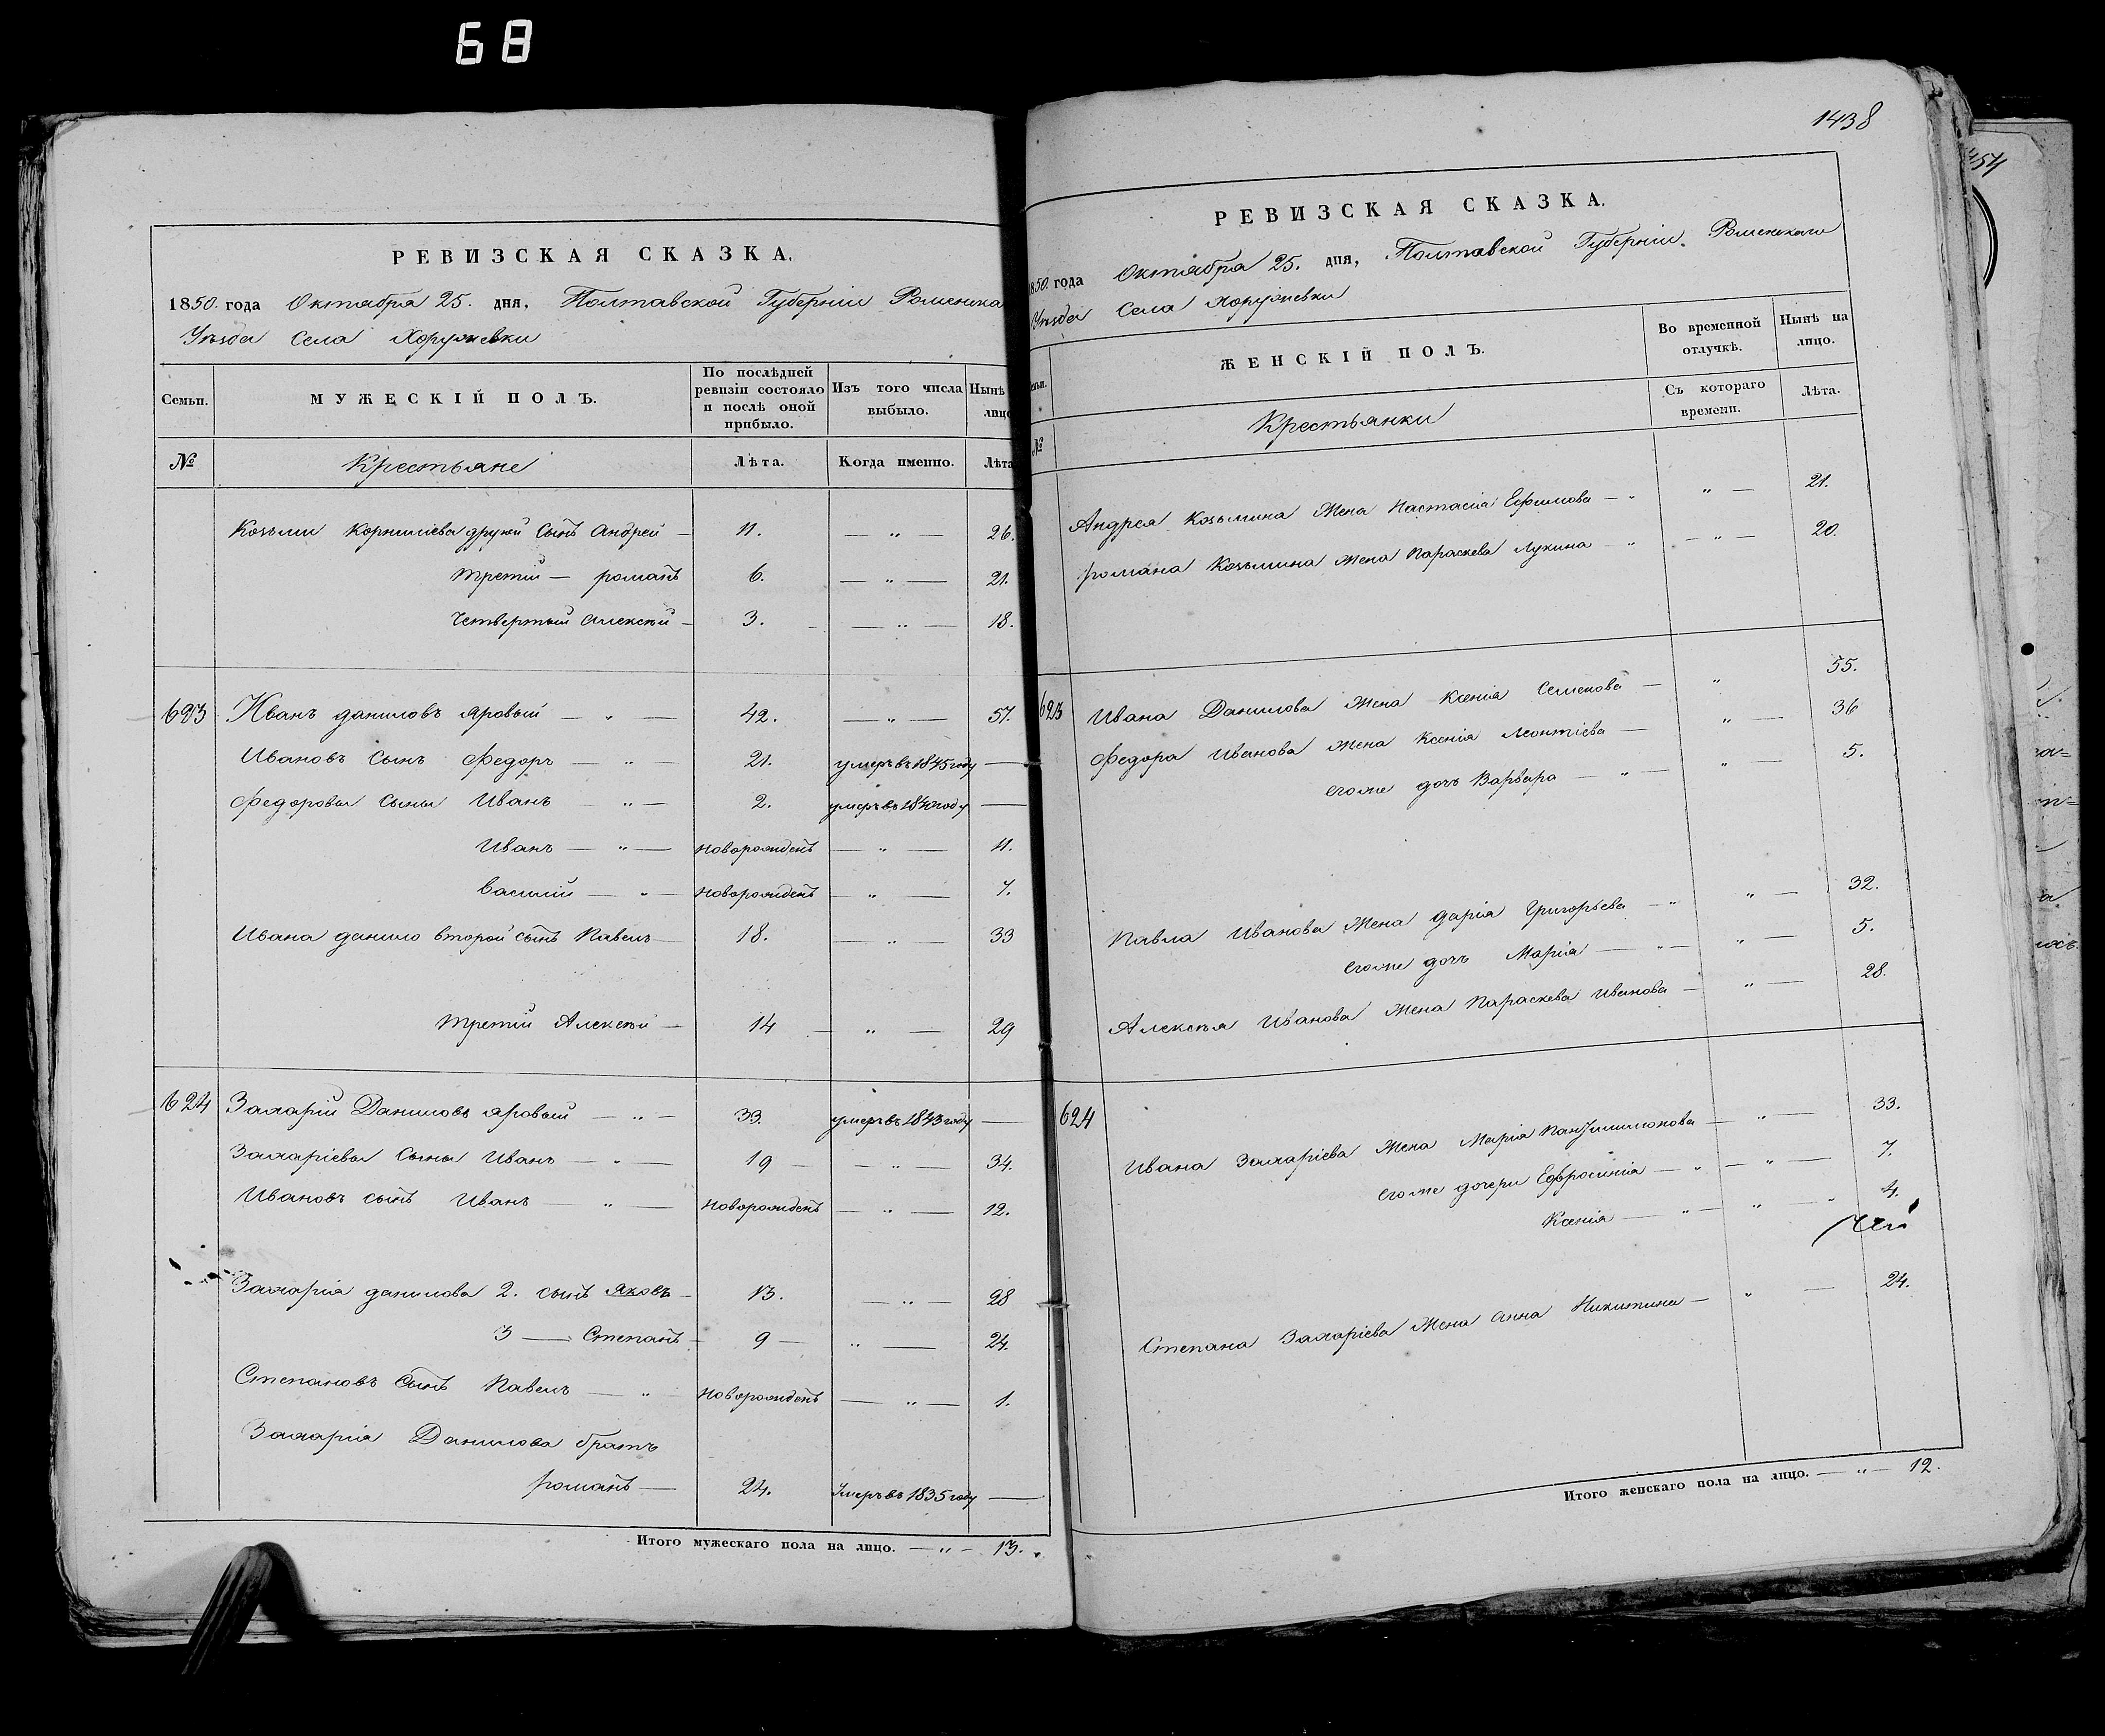 68
РЕВИЗСКАЯ СКАЗКА.
1850 года Октября 25. дня, Полтавской Губерніи Роменска
Уѣзда Села Хоружевки
Семьи.
МУЖЕСКІЙ ПОЛЪ.
По послѣдней ревизіи состояло и послѣ оной прибыло.
Изъ того числа выбыло.
Нынѣ лицо
№
Крестьяне
Лѣта.
Когда именно.
Лѣта
Козьми Корнилієва другій Сынъ Андрей — 11. — „ — 26.
третій — романъ 6. — „ — 21.
Четвертый Алексѣй — 3. — „ — 18.
623 Иванъ даниловъ Яровый — „ — 42. — „ — 57.
Ивановъ Сынъ Федоръ — „ — 21. умеръ въ 1845 году —
Федоровы Сыны Иванъ „ — 2. умеръ въ 1840 году —
Иванъ — „ — новорожденъ — „ — 11.
Василій — „ — новорожденъ — „ — 7.
Ивана данило второй сынъ Павелъ — 18. — „ — 33
третій Алексѣй — 14 — „ — 29
624 Захарій Даниловъ Яровый — „ — 33. умеръ въ 1843 году —
Захаріевы Сыны Иванъ — „ — 19 — — „ — 34.
Ивановъ сынъ Иванъ — „ — новорожденъ — „ — 12.
Захарія данилова 2. сынъ Яковъ — 13. — „ — 28
3 — Степанъ — 9 — „ — 24.
Степановъ Сынъ Павелъ — „ новорожденъ — „ — 1.
Захарія Данилова братъ
романъ — 24. Умеръ въ 1835 году —
Итого мужескаго пола на лицо. — „ — 13.
1438
454
РЕВИЗСКАЯ СКАЗКА.
1850. года Октября 25. дня, Полтавской Губерніи. Роменскаго
Уѣзда Села Хоружевки
Семьи.
ЖЕНСКІЙ ПОЛЪ.
Во временной отлучкѣ.
Нынѣ на лицо.
№
Крестьянки
Съ котораго времени.
Лѣта.
Андрея Козьмина Жена Настасія Ефимова — „ „ — 21.
романа Козьмина Жена Параскева Лукина — „ — „ — 20.
623 Ивана Данилова Жена Ксенія Семенова — „ 55.
Федора Иванова Жена Ксенія Леонтіева — „ — 36
егоже дочь Варвара — „ — „ — 5.
Павла Иванова Жена дарія Григорьева — „ „ — 32.
егоже дочь Марія — „ — „ — 5.
Алексѣя Иванова Жена Параскева Иванова — „ — 28.
624
Ивана Захаріева Жена Марія Панфилимонова — „ — 33.
егоже дочери Ефросинія — „ — „ — 7.
Ксенія — „ — „ — „ 4.
Степана Захаріева Жена Анна Никитина — „ — 24.
Итого женскаго пола на лицо. — „ — 12.